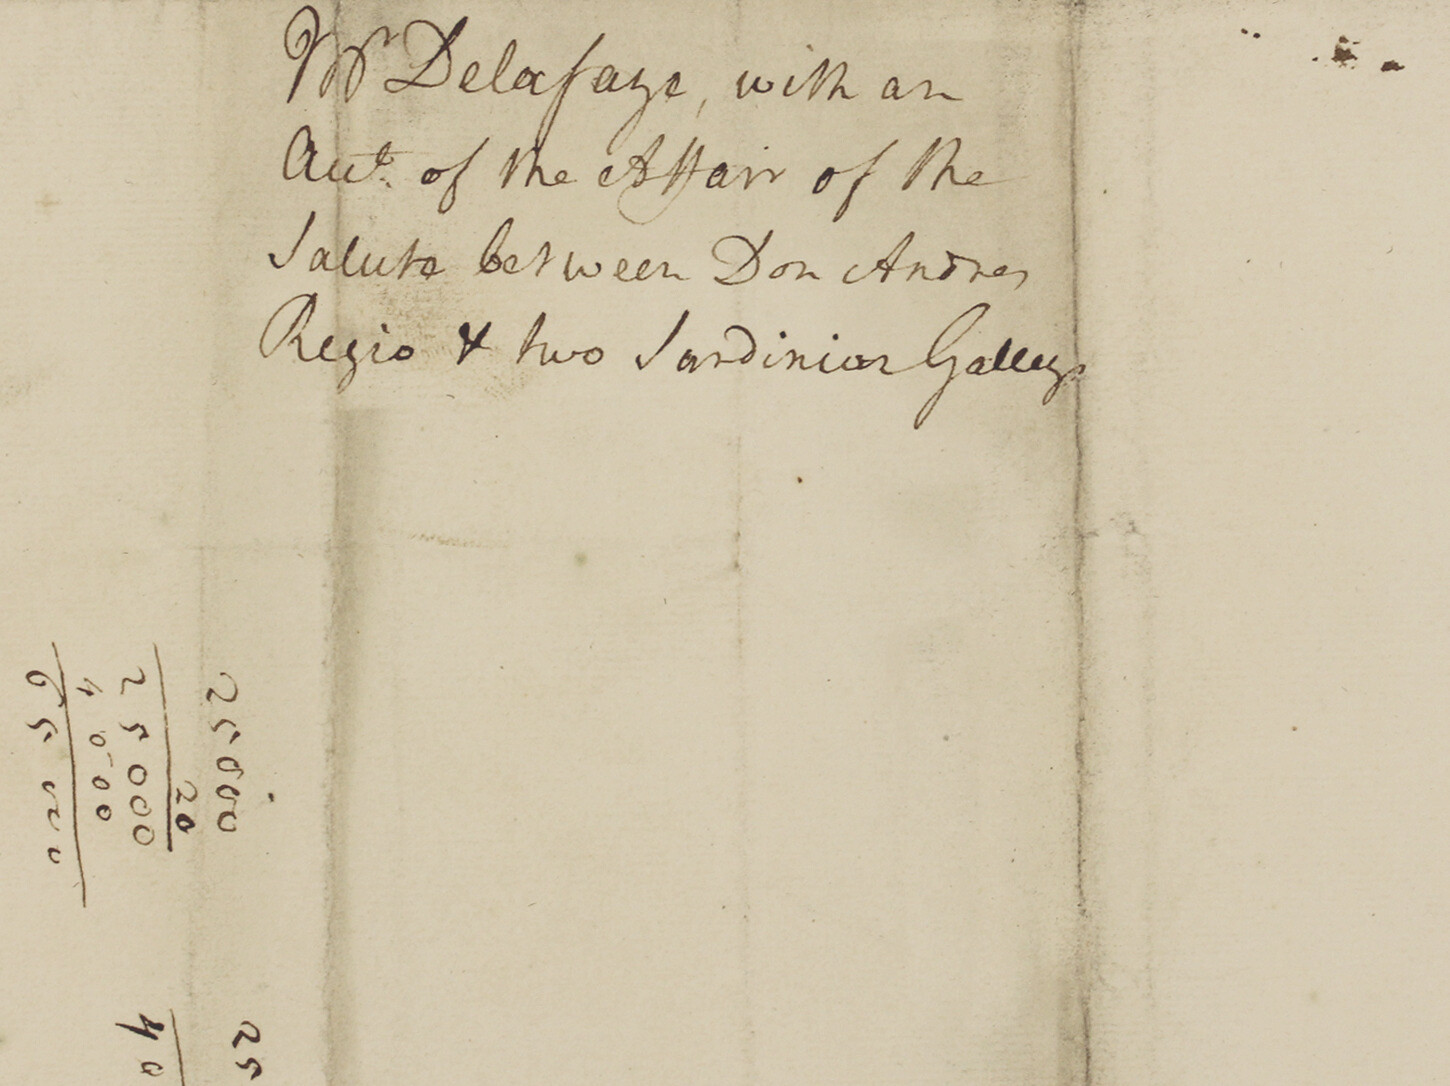 Mr Delafaye, with an
Acct. of the Affair of the
Salute between Don Andres
Regio & two Sardinian Galleys
25000
20
25000
4000
40
25